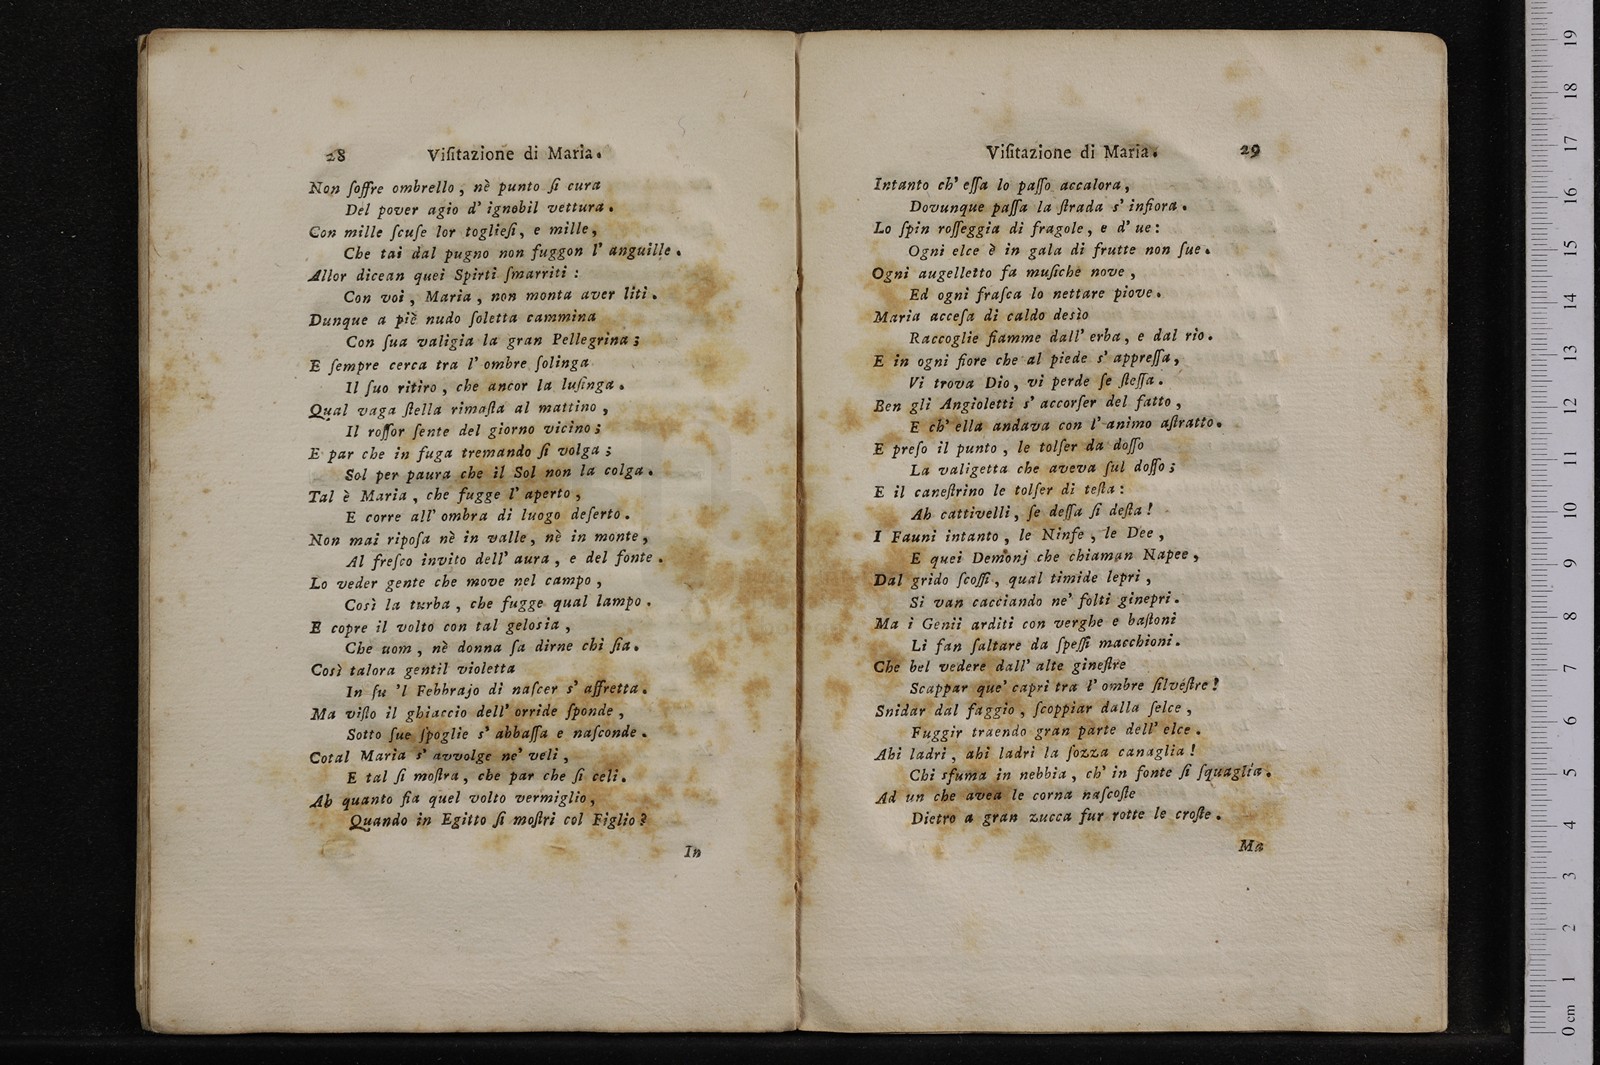 28 Viſitazione di Maria.
Non ſoffre ombrello, nè punto ſi cura
Del pover agio d' ignobil vettura.
Con mille ſcuſe lor toglieſi, e mille,
Che tai dal pugno non fuggon l' anguille.
Allor dicean quei Spirti ſmarriti:
Con voi, Maria, non monta aver liti.
Dunque a piè nudo ſoletta cammina
Con ſua valigia la gran Pellegrina;
E ſempre cerca tra l' ombre ſolinga
Il ſuo ritiro, che ancor la luſinga.
Qual vaga ſtella rimaſta al mattino,
Il roſſor ſente del giorno vicino;
E par che in fuga tremando ſi volga;
Sol per paura che il Sol non la colga.
Tal è Maria, che fugge l' aperto,
E corre all' ombra di luogo deſerto.
Non mai ripoſa nè in valle, nè in monte,
Al freſco invito dell' aura, e del fonte.
Lo veder gente che move nel campo,
Così la turba, che fugge qual lampo.
E copre il volto con tal geloſia,
Che uom, nè donna ſa dirne chi ſia.
Così talora gentil violetta
In ſu 'l Febbrajo di naſcer s' affretta.
Ma viſto il ghiaccio dell' orride ſponde,
Sotto ſue ſpoglie s' abbaſſa e naſconde.
Cotal Maria s' avvolge ne' veli,
E tal ſi moſtra, che par che ſi celi.
Ah quanto fia quel volto vermiglio,
Quando in Egitto ſi moſtri col Figlio?
In
Viſitazione di Maria. 29
Intanto ch' eſſa lo paſſo accalora,
Dovunque paſſa la ſtrada s' infiora.
Lo ſpin roſſeggia di fragole, e d' ue:
Ogni elce è in gala di frutte non ſue.
Ogni augelletto fa muſiche nove,
Ed ogni fraſca lo nettare piove.
Maria acceſa di caldo desìo
Raccoglie fiamme dall' erba, e dal rio.
E in ogni fiore che al piede s' appreſſa,
Vi trova Dio, vi perde ſe ſteſſa.
Ben gli Angioletti s' accorſer del fatto,
E ch' ella andava con l' animo aſtratto.
E preſo il punto, le tolſer da doſſo
La valigetta che aveva ſul doſſo;
E il caneſtrino le tolſer di teſta:
Ah cattivelli, ſe deſſa ſi deſta!
I Fauni intanto, le Ninfe, le Dee,
E quei Demonj che chiaman Napee,
Dal grido ſcoſſi, qual timide lepri,
Si van cacciando ne' folti ginepri.
Ma i Genii arditi con verghe e baſtoni
Li fan ſaltare da ſpeſſi macchioni.
Che bel vedere dall' alte gineſtre
Scappar que' capri tra l' ombre ſilveſtre!
Snidar dal faggio, ſcoppiar dalla ſelce,
Fuggir traendo gran parte dell' elce.
Ahi ladri, ahi ladri la ſozza canaglia!
Chi sfuma in nebbia, ch' in fonte ſi ſquaglia.
Ad un che avea le corna naſcoſte
Dietro a gran zucca fur rotte le croſte.
Ma
0 cm 1 2 3 4 5 6 7 8 9 10 11 12 13 14 15 16 17 18 19